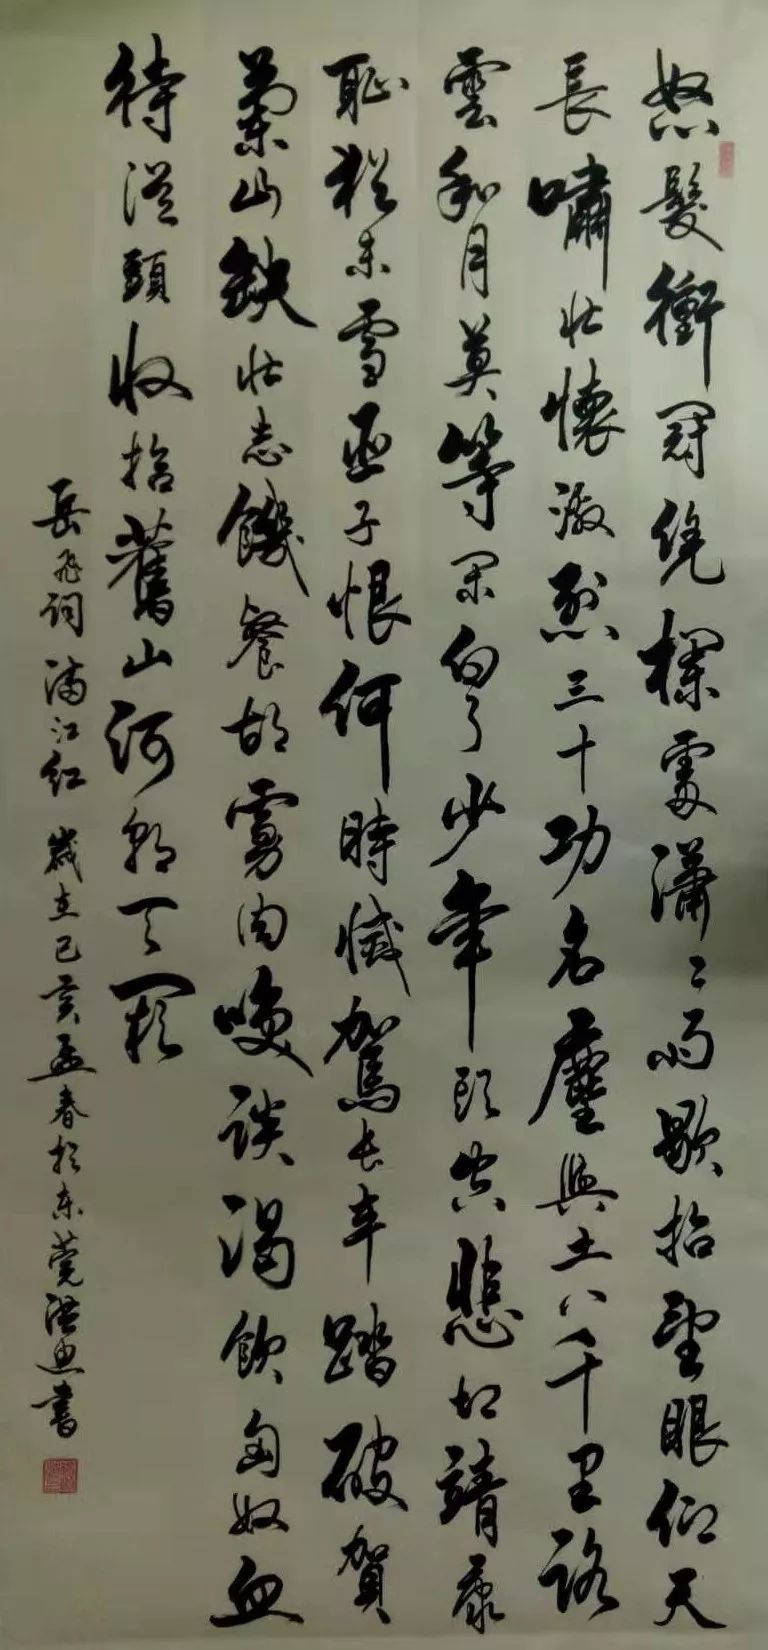 怒髮衝冠凭欄處瀟〻雨歇抬望眼仰天
長嘯壯懷激烈三十功名塵與土八千里路
雲和月莫等閑白了少年頭空悲切靖康
恥猶未雪臣子恨何時滅駕长车踏破賀
蘭山缺壯志饑餐胡虜肉咲談渴飲匈奴血
待從頭收拾舊山河朝天闕
岳飛词满江红 歲在己亥孟春於东莞書